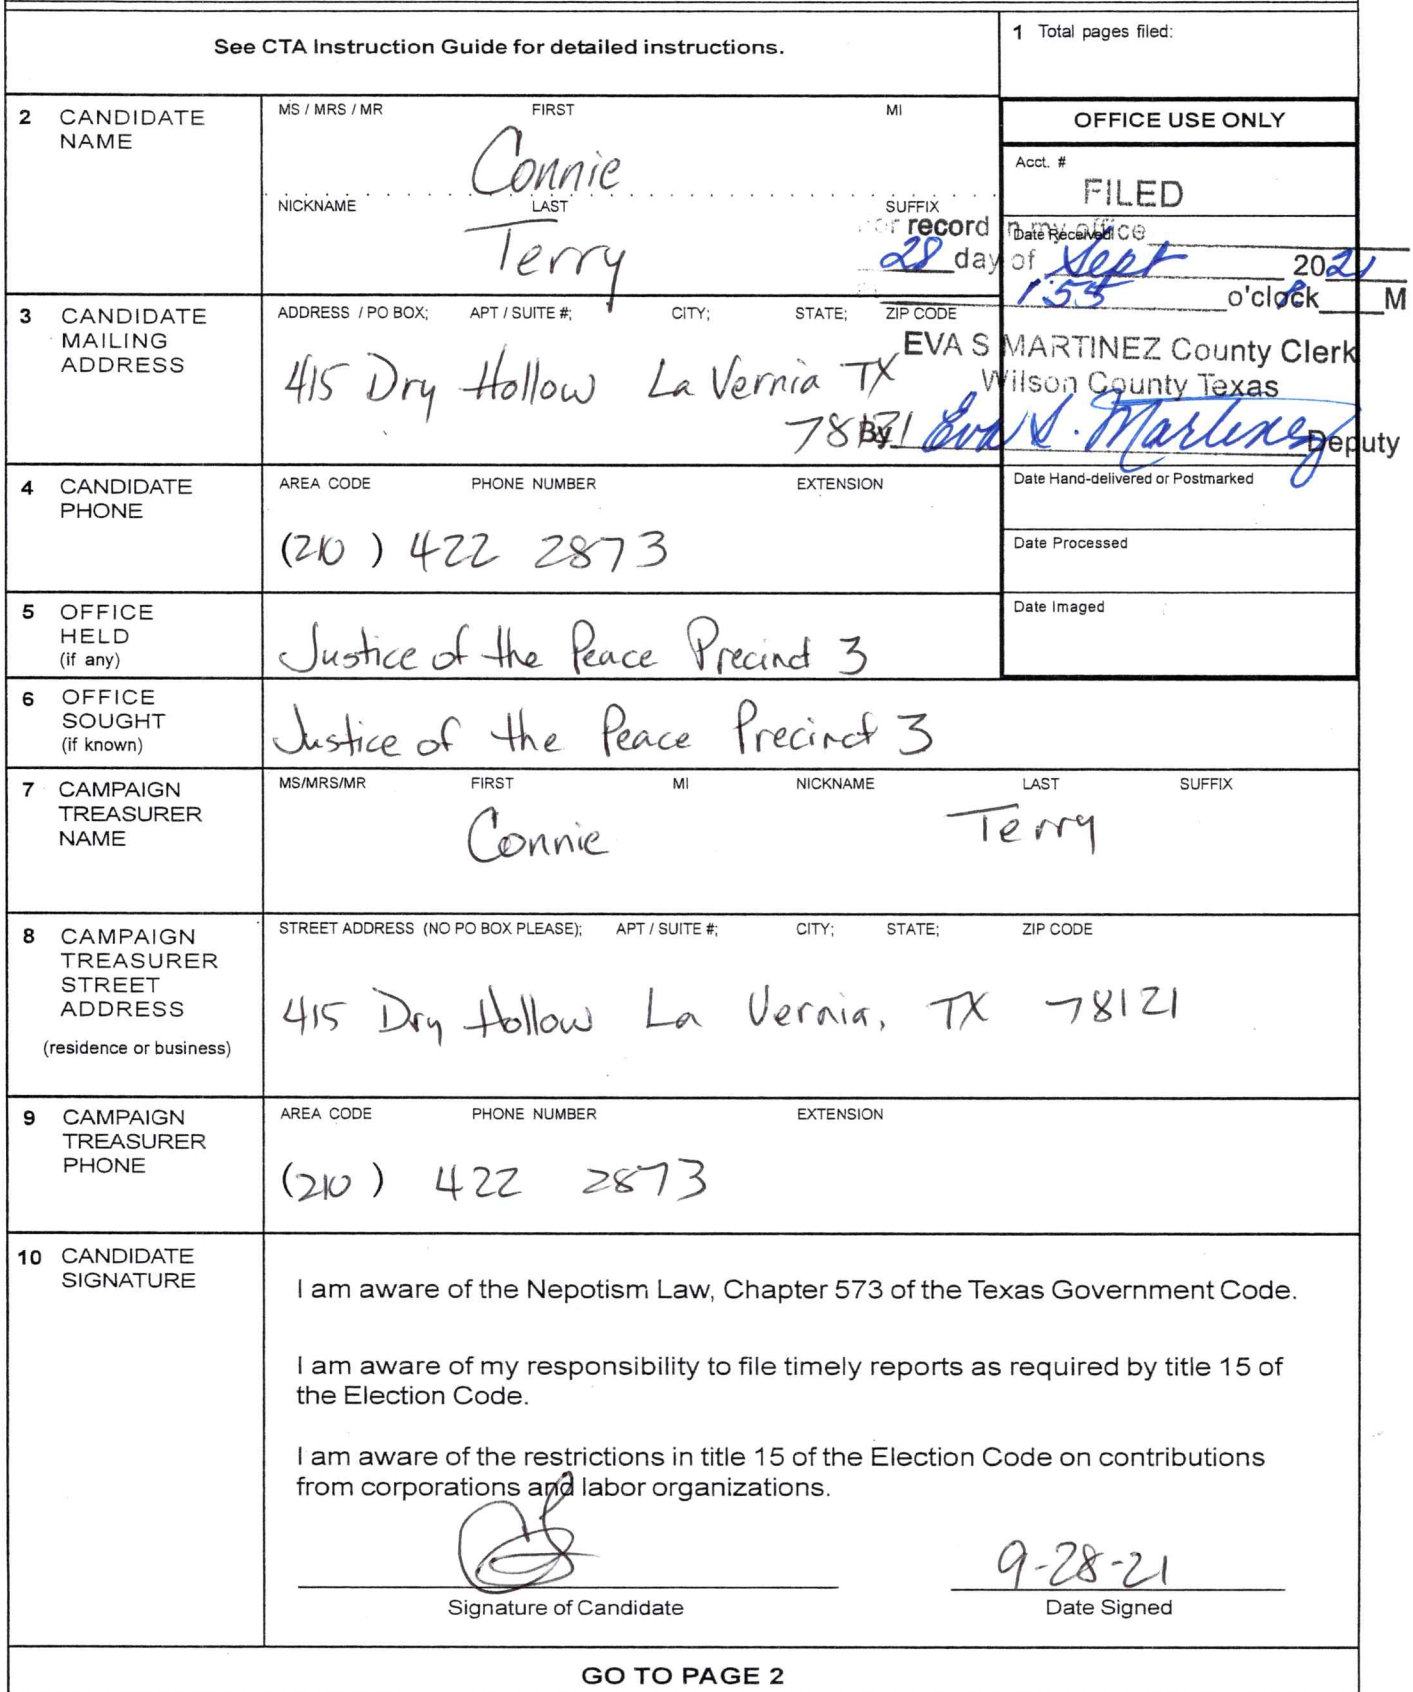 See CTA Instruction Guide for detailed instructions.
1 Total pages filed:
2 CANDIDATE NAME
MS / MRS / MR FIRST MI
Connie
NICKNAME LAST SUFFIX
Terry
OFFICE USE ONLY
Acct. #
FILED
Date Received
for record in my office
28 day of Sept 2021
1:55 o'clock P M
EVA S MARTINEZ County Clerk
Wilson County Texas
By Eva S. Martinez Deputy
Date Hand-delivered or Postmarked
Date Processed
Date Imaged
3 CANDIDATE MAILING ADDRESS
ADDRESS / PO BOX; APT / SUITE #; CITY; STATE; ZIP CODE
415 Dry Hollow La Vernia TX
78121
4 CANDIDATE PHONE
AREA CODE PHONE NUMBER EXTENSION
(210) 422 2873
5 OFFICE HELD (if any)
Justice of the Peace Precinct 3
6 OFFICE SOUGHT (if known)
Justice of the Peace Precinct 3
7 CAMPAIGN TREASURER NAME
MS/MRS/MR FIRST MI NICKNAME LAST SUFFIX
Connie Terry
8 CAMPAIGN TREASURER STREET ADDRESS
(residence or business)
STREET ADDRESS (NO PO BOX PLEASE); APT / SUITE #; CITY; STATE; ZIP CODE
415 Dry Hollow La Vernia, TX 78121
9 CAMPAIGN TREASURER PHONE
AREA CODE PHONE NUMBER EXTENSION
(210) 422 2873
10 CANDIDATE SIGNATURE
I am aware of the Nepotism Law, Chapter 573 of the Texas Government Code.
I am aware of my responsibility to file timely reports as required by title 15 of
the Election Code.
I am aware of the restrictions in title 15 of the Election Code on contributions
from corporations and labor organizations.
9-28-21
Signature of Candidate Date Signed
GO TO PAGE 2